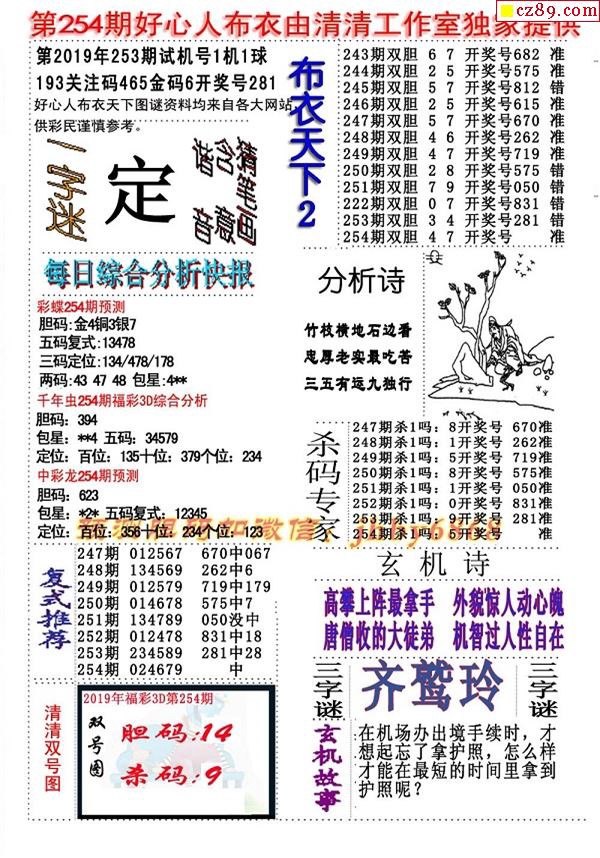 cz89.com
第254期好心人布衣由清清工作室独家提供
第2019年253期试机号1机1球
193关注码465金码6开奖号281
好心人布衣天下图谜资料均来自各大网站,
供彩民谨慎参考。
一字迷
定
猜笔画
含意
谐音
布衣天下2
243期双胆 6 7 开奖号682 准
244期双胆 2 5 开奖号575 准
245期双胆 5 7 开奖号812 错
246期双胆 2 5 开奖号615 准
247期双胆 5 7 开奖号670 准
248期双胆 4 6 开奖号262 准
249期双胆 4 7 开奖号719 准
250期双胆 2 8 开奖号575 错
251期双胆 7 9 开奖号050 错
222期双胆 0 7 开奖号831 错
253期双胆 3 4 开奖号281 错
254期双胆 4 7 开奖号 准
每日综合分析快报
彩蝶254期预测
胆码:金4铜3银7
五码复式:13478
三码定位:134/478/178
两码:43 47 48 包星:4**
千年虫254期福彩3D综合分析
胆码: 394
包星: **4 五码: 34579
定位: 百位: 135十位: 379个位: 234
中彩龙254期预测
胆码: 623
包星: *2* 五码复式: 12345
定位: 百位: 356十位: 234个位: 123
分析诗
竹枝横地石边看
忠厚老实最吃苦
三五有运九独行
杀码专家
247期杀1吗: 8开奖号 670准
248期杀1吗: 1开奖号 262准
249期杀1吗: 5开奖号 719准
250期杀1吗: 8开奖号 575准
251期杀1吗: 1开奖号 050准
252期杀1吗: 0开奖号 831准
253期杀1吗: 9开奖号 281准
254期杀1吗: 5开奖号 准
复式推荐
247期 012567 670中067
248期 134569 262中6
249期 012579 719中179
250期 014678 575中7
251期 134789 050没中
252期 012478 831中18
253期 234589 281中28
254期 024679 中
玄机诗
高攀上阵最拿手 外貌惊人动心魄
唐僧收的大徒弟 机智过人性自在
三字谜
齐鹫玲
三字谜
清清双号图
2019年福彩3D第254期
双号图
胆码:14
杀码:9
玄机故事
在机场办出境手续时，才
想起忘了拿护照，怎么样
才能在最短的时间里拿到
护照呢？